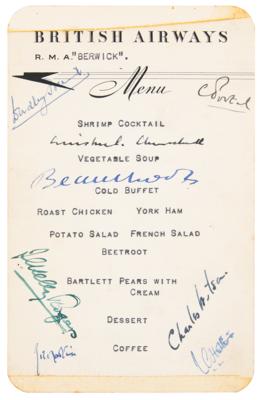 BRITISH AIRWAYS
R. M. A. "BERWICK".
Menu
C Portal
SHRIMP COCKTAIL
Winston S. Churchill
VEGETABLE SOUP
COLD BUFFET
ROAST CHICKEN YORK HAM
POTATO SALAD FRENCH SALAD
BEETROOT
BARTLETT PEARS WITH
CREAM
DESSERT
Charles Wilson
COFFEE